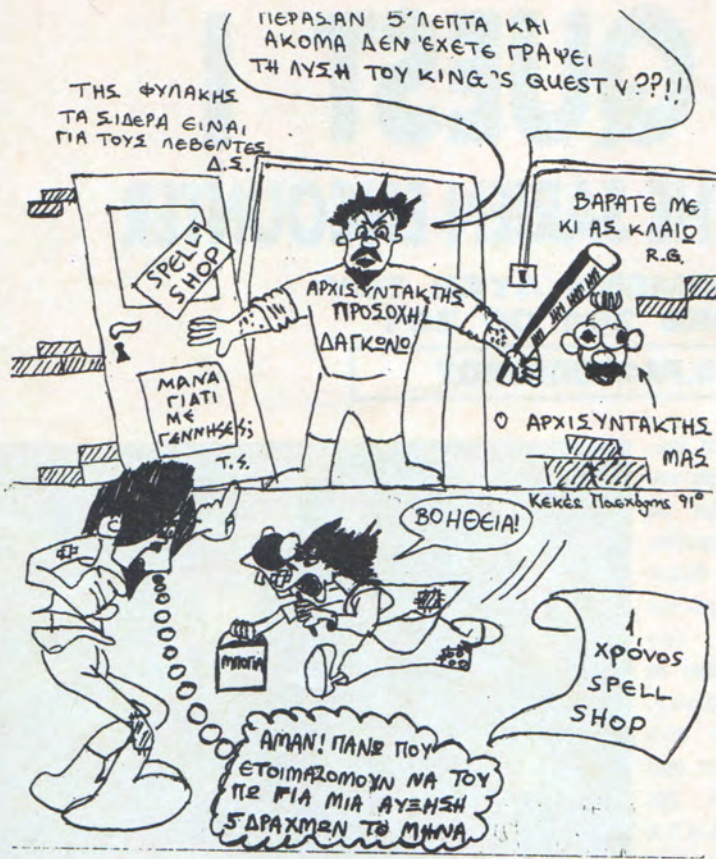 ΠΕΡΑΣΑΝ 5' ΛΕΠΤΑ ΚΑΙ
ΑΚΟΜΑ ΔΕΝ ΈΧΕΤΕ ΓΡΑΨΕΙ
ΤΗ ΛΥΣΗ ΤΟΥ KING'S QUEST V??!!
ΤΗΣ ΦΥΛΑΚΗΣ
ΤΑ ΣΙΔΕΡΑ ΕΙΝΑΙ
ΓΙΑ ΤΟΥΣ ΛΕΒΕΝΤΕΣ
Δ.Σ.
SPELL
SHOP
ΑΡΧΙΣΥΝΤΑΚΤΗΣ
ΠΡΟΣΟΧΗ!
ΔΑΓΚΩΝΩ
ΒΑΡΑΤΕ ΜΕ
ΚΙ ΑΣ ΚΛΑΙΩ
R.G.
ΜΑΝΑ
ΓΙΑΤΙ
ΜΕ
ΓΕΝΝΗΣΕΣ;
T.S.
Ο ΑΡΧΙΣΥΝΤΑΚΤΗΣ
ΜΑΣ
Κεκές Πασχάλης 91°
ΒΟΗΘΕΙΑ!
ΜΠΟΓΙΑ
1
χρόνος
SPELL
SHOP
ΑΜΑΝ! ΠΑΝΩ ΠΟΥ
ΕΤΟΙΜΑΖΟΜΟΥΝ ΝΑ ΤΟΥ
ΠΩ ΓΙΑ ΜΙΑ ΑΥΞΗΣΗ
5 ΔΡΑΧΜΩΝ ΤΟ ΜΗΝΑ